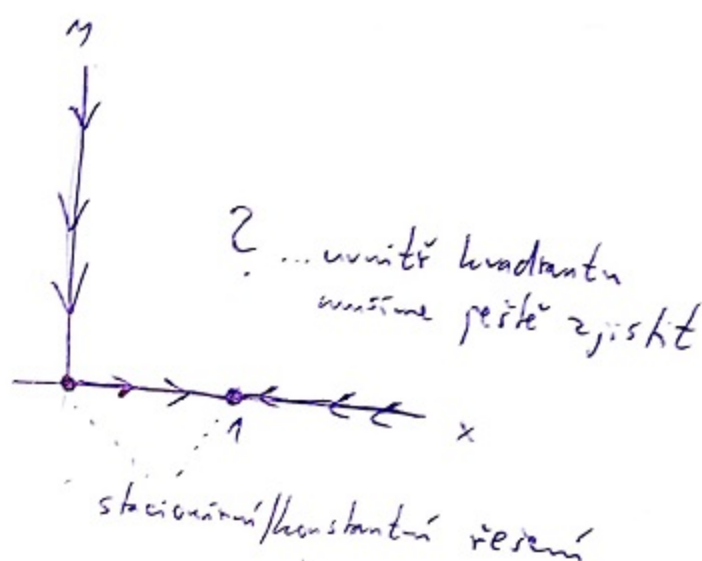 y
? ... uvnitř kvadrantu
musíme ještě zjistit
1
x
stacionární/konstantní řešení